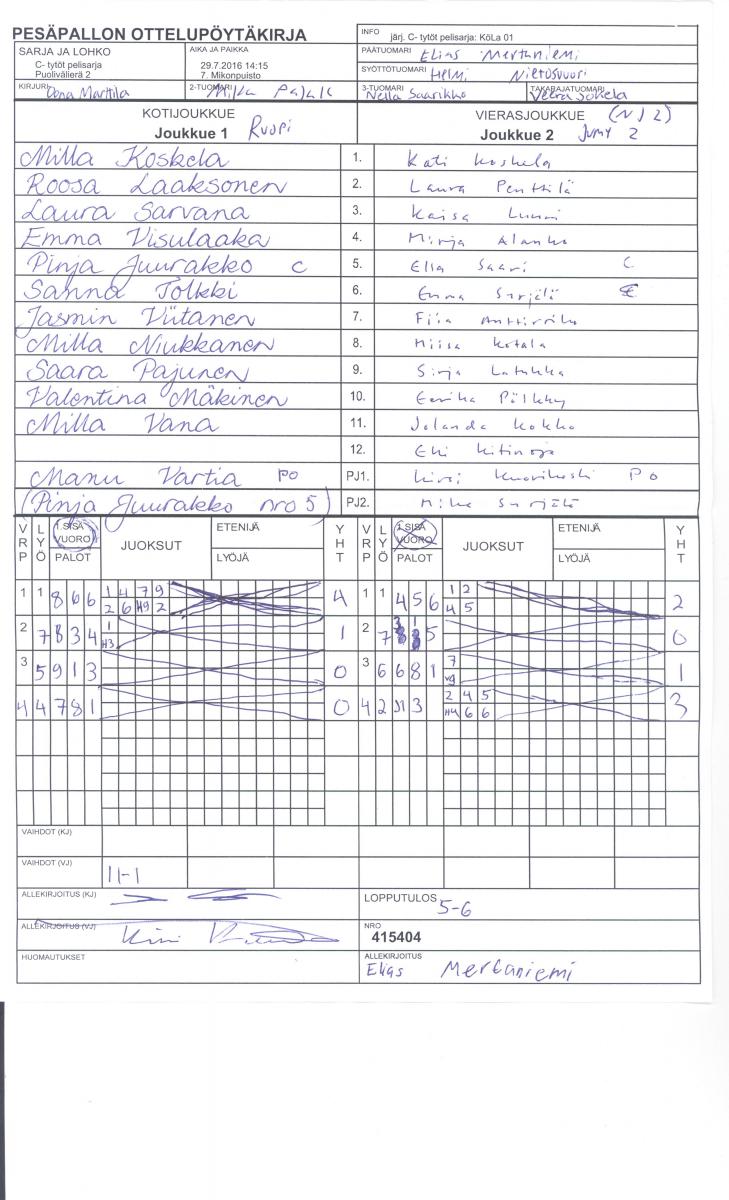 PESÄPALLON OTTELUPÖYTÄKIRJA
INFO järj. C- tytöt pelisarja: KöLa 01
SARJA JA LOHKO
C- tytöt pelisarja
Puolivälierä 2
AIKA JA PAIKKA
29.7.2016 14:15
7. Mikonpuisto
PÄÄTUOMARI Elias Mertaniemi
SYÖTTÖTUOMARI Helmi Nietosvuori
KIRJURI Oona Marttila
2-TUOMARI Milka
3-TUOMARI Nella Saarikko
TAKARAJATUOMARI Veera Jokela
KOTIJOUKKUE
Joukkue 1 Ruopi
VIERASJOUKKUE (NJ2)
Joukkue 2 JyMy 2
Milla Koskela 1. Kati Koskela
Roosa Laaksonen 2. Laura Penttilä
Laura Sarvana 3. Kaisa Luuri
Emma Visulaaka 4. Mirja Alanko
Pinja Juurakko C 5. Ella Saari C
Sanna Tolkki 6. Emma Surjälä
Jasmin Viitanen 7. Fiia
Milla Niukkanen 8. Miisa Kotala
Saara Pajunen 9. Sirja Latukka
Valentina Mäkinen 10. Eerika Pölkky
Milla Vana 11. Jolanda Kokko
12. Elli Kitinoja
Manu Vartia PO PJ1. Kirsi Kuorikoski PO
(Pinja Juurakko nro 5) PJ2. Mika Surjälä
VRP LYÖ 1.SISÄ VUORO PALOT JUOKSUT ETENIJÄ LYÖJÄ YHT VRP LYÖ 1.SISÄ VUORO PALOT JUOKSUT ETENIJÄ LYÖJÄ YHT
1 1 8 6 6 1 4 7 9 4 1 1 4 5 6 1 2 2
2 6 H9 2 4 5
2 7 8 3 4 1 1 2 7 5 0
H3
3 5 9 1 3 0 3 6 6 8 1 7 1
V9
4 4 7 8 1 0 4 2 J1 3 2 4 5 3
H4 6 6
VAIHDOT (KJ)
VAIHDOT (VJ) 11-1
ALLEKIRJOITUS (KJ)
LOPPUTULOS 5-6
ALLEKIRJOITUS (VJ)
NRO
415404
HUOMAUTUKSET
ALLEKIRJOITUS
Elias Mertaniemi